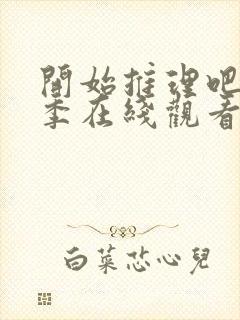 開始推理吧
季在綫觀看
白菜芯心兒